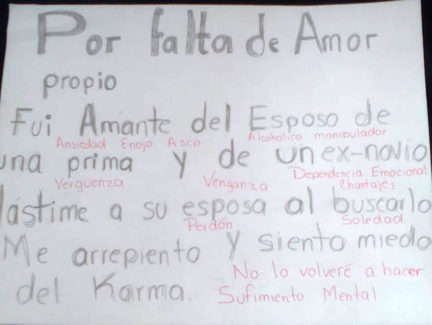 Por falta de Amor
propio
Fui Amante del Esposo de
Ansiedad Enojo Asco Alcoholico manipulador
una prima y de un ex-novio
Verguenza Venganza Dependencia Emocional
Chantajes
lástime a su esposa al buscarlo
Perdón Soledad
Me arrepiento y siento miedo
No lo volveré a hacer
del Karma. Sufimiento Mental